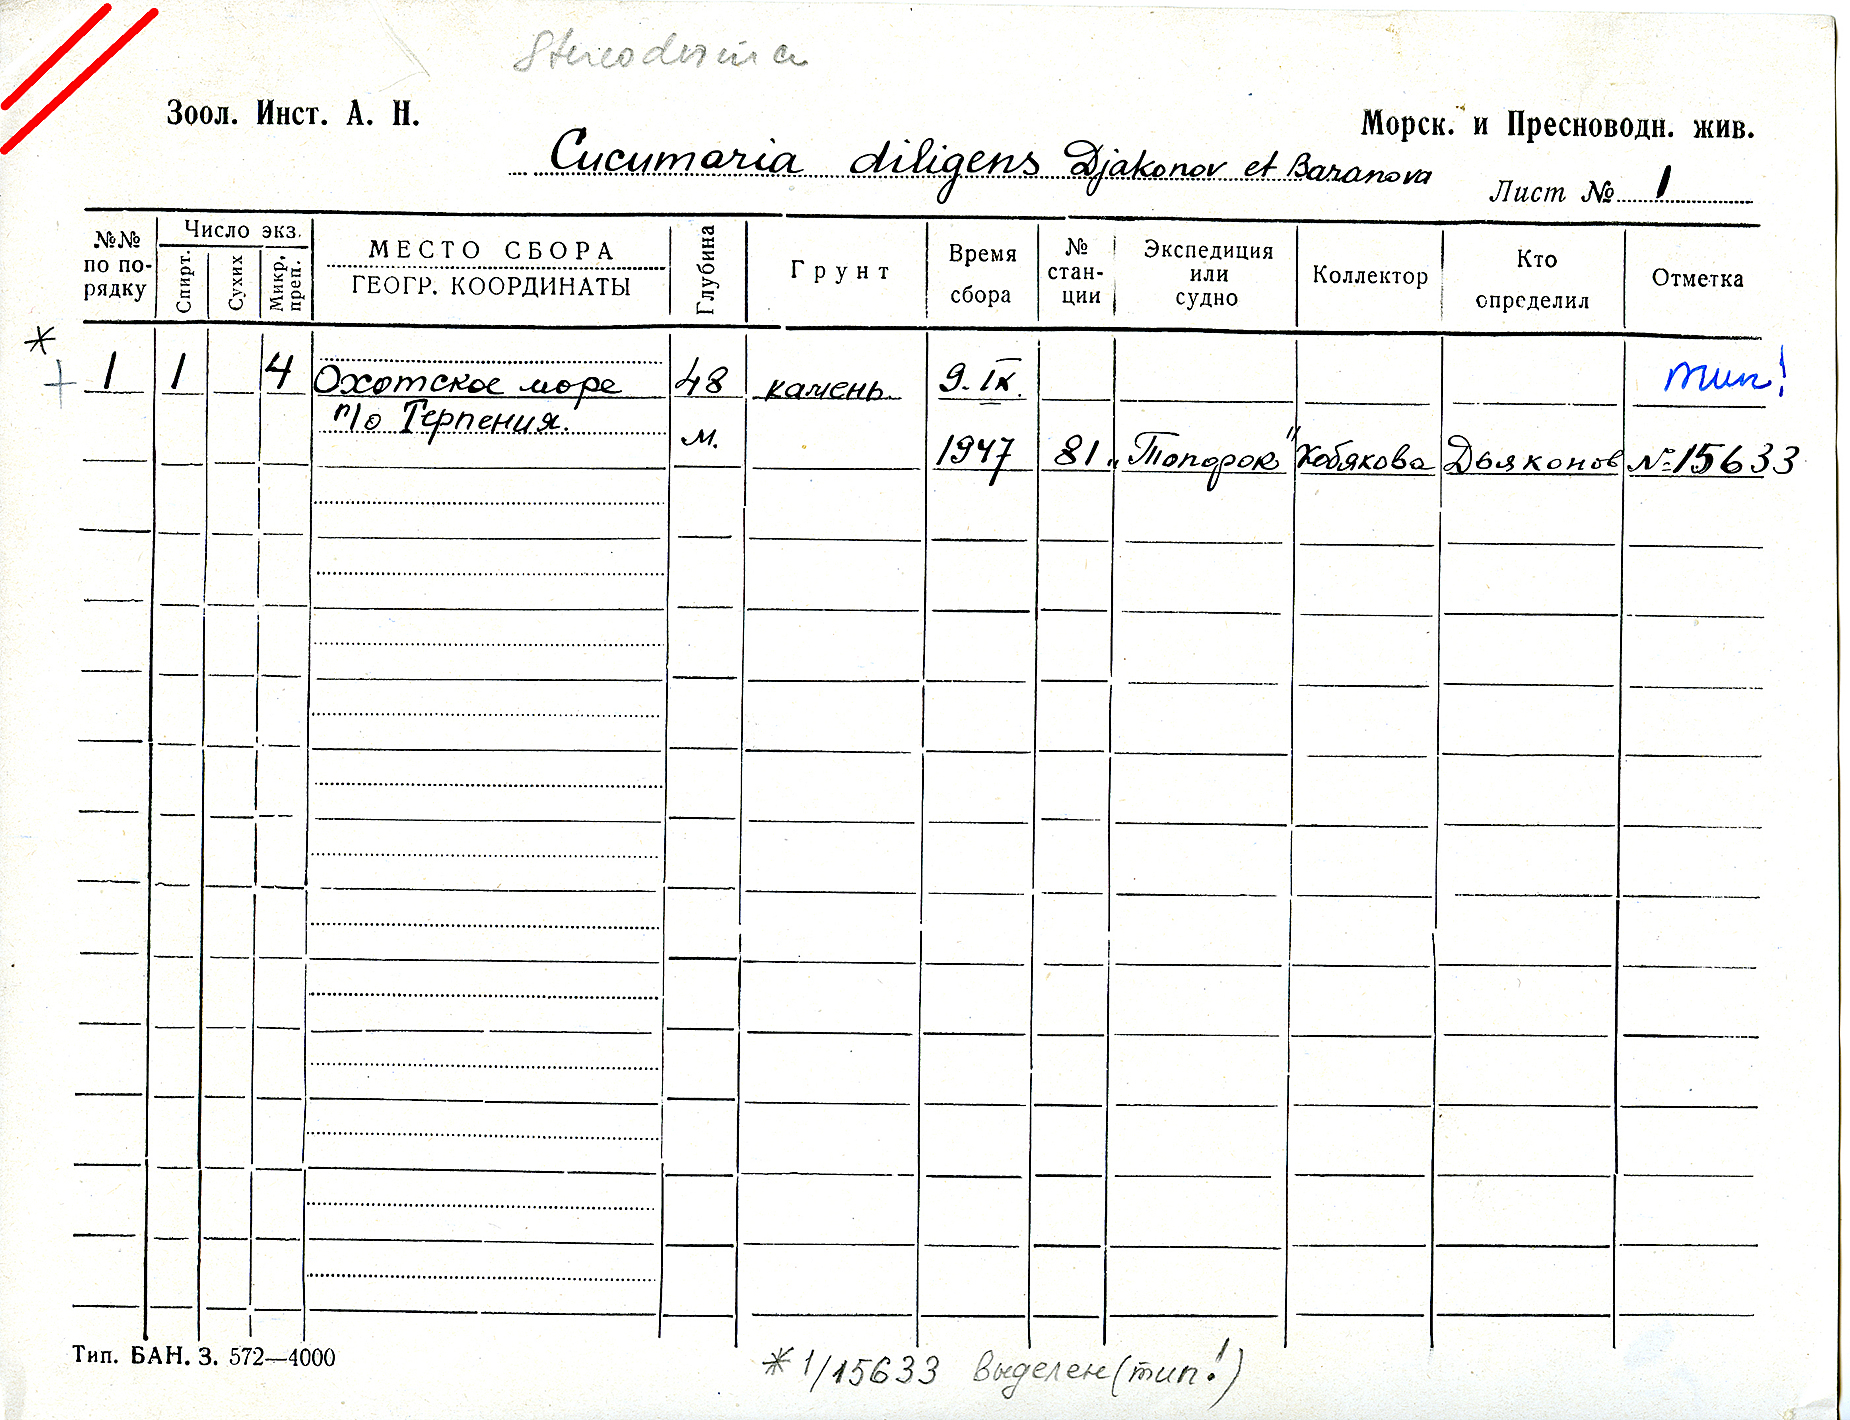 Stereoderma
Зоол. Инст. А. Н.
Морск. и Пресноводн. жив.
Cucumaria diligens Djakonov et Baranova
Лист № 1
№№ по по-рядку
Число экз.
Спирт.
Сухих
Микр. преп.
МЕСТО СБОРА
ГЕОГР. КООРДИНАТЫ
Глубина
Грунт
Время сбора
№ стан-ции
Экспедиция или судно
Коллектор
Кто определил
Отметка
* + 1 1 4 Охотское море 48 камень 9. IX. тип!
п/о Терпения. м. 1947 81 „Топорок" Кобякова Дьяконов №15633
Тип. БАН. З. 572—4000
* 1/15633 выделен (тип!)